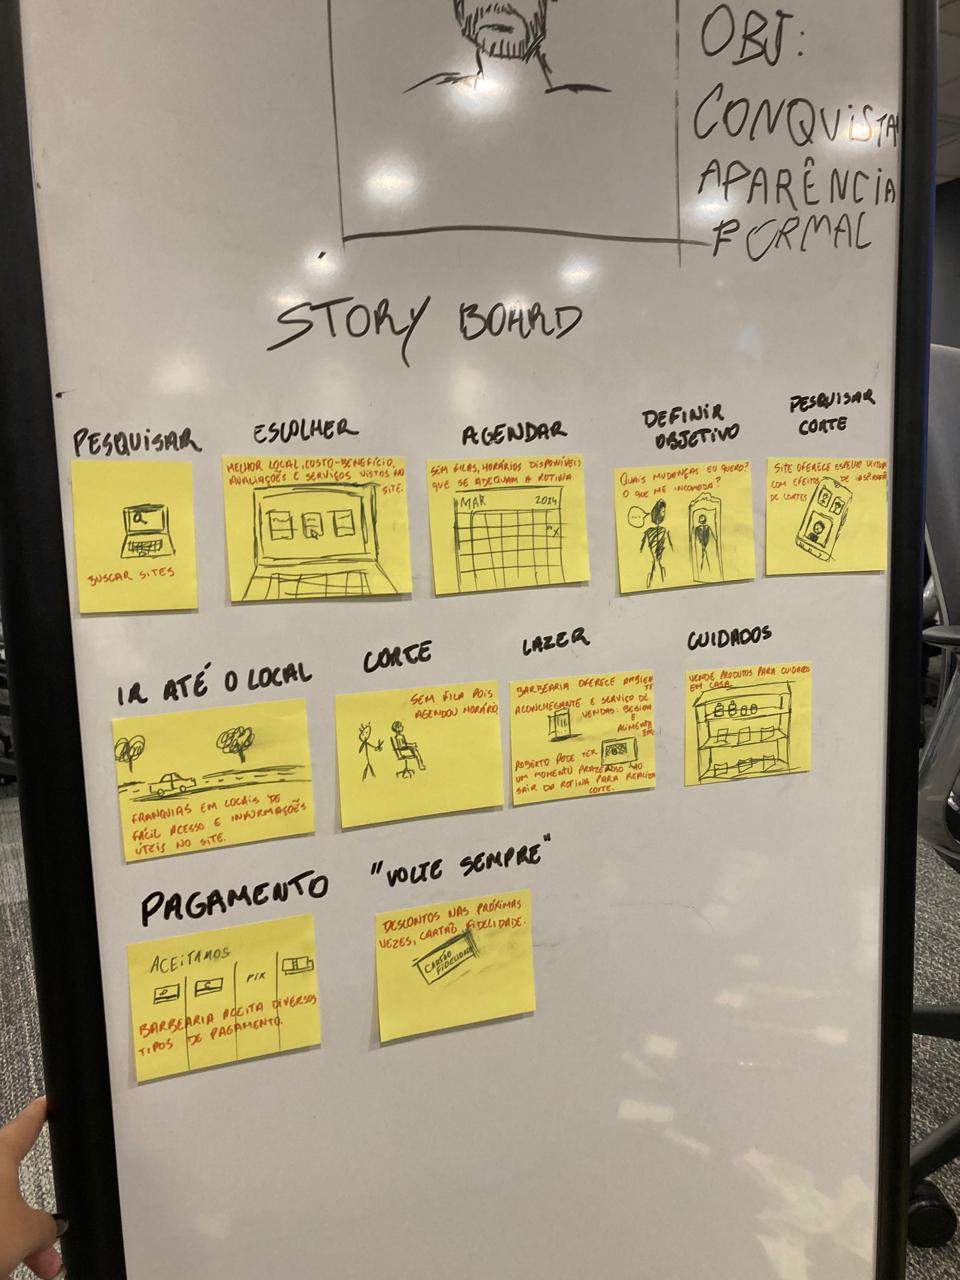 OBJ:
CONQUISTAR
APARÊNCIA
FORMAL
STORY BOARD
PESQUISAR
BUSCAR SITES
ESCOLHER
MELHOR LOCAL, CUSTO-BENEFÍCIO,
AVALIAÇÕES E SERVIÇOS VISTOS NO
SITE.
AGENDAR
SEM FILAS, HORÁRIOS DISPONÍVEIS
QUE SE ADEQUAM A ROTINA.
MAR 2024
X
DEFINIR
OBJETIVO
QUAIS MUDANÇAS EU QUERO?
O QUE ME INCOMODA?
PESQUISAR
CORTE
SITE OFERECE ESPELHO VIRTUAL
COM EFEITOS DE INSPIRAÇÃO
DE CORTES
IR ATÉ O LOCAL
FRANQUIAS EM LOCAIS DE
FÁCIL ACESSO E INFORMAÇÕES
ÚTEIS NO SITE.
CORTE
SEM FILA POIS
AGENDOU HORÁRIO
LAZER
BARBEARIA OFERECE AMBIEN
TE
ACONCHEGANTE E SERVIÇO DE
VENDAS: BEBIDA
E
ALIMENTA
ÇÃO
ROBERTO PODE TER
UM MOMENTO PRAZEROSO AO
SAIR DA ROTINA PARA REALIZAR
CORTE.
CUIDADOS
VENDE PRODUTOS PARA CUIDADOS
EM CASA.
PAGAMENTO
ACEITAMOS
PIX
BARBEARIA ACEITA DIVERSOS
TIPOS DE PAGAMENTO.
"VOLTE SEMPRE"
DESCONTOS NAS PRÓXIMAS
VEZES, CARTÃO FIDELIDADE.
CARTÃO
FIDELIDADE